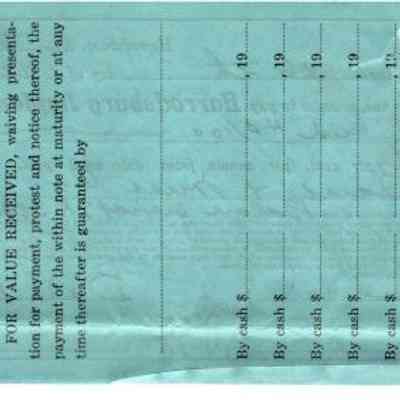 FOR VALUE RECEIVED, waiving presenta-
tion for payment, protest and notice thereof, the
payment of the within note at maturity or at any
time thereafter is guaranteed by
By cash $ , 19
By cash $ , 19
By cash $ , 19
By cash $ , 19
By cash $ , 19